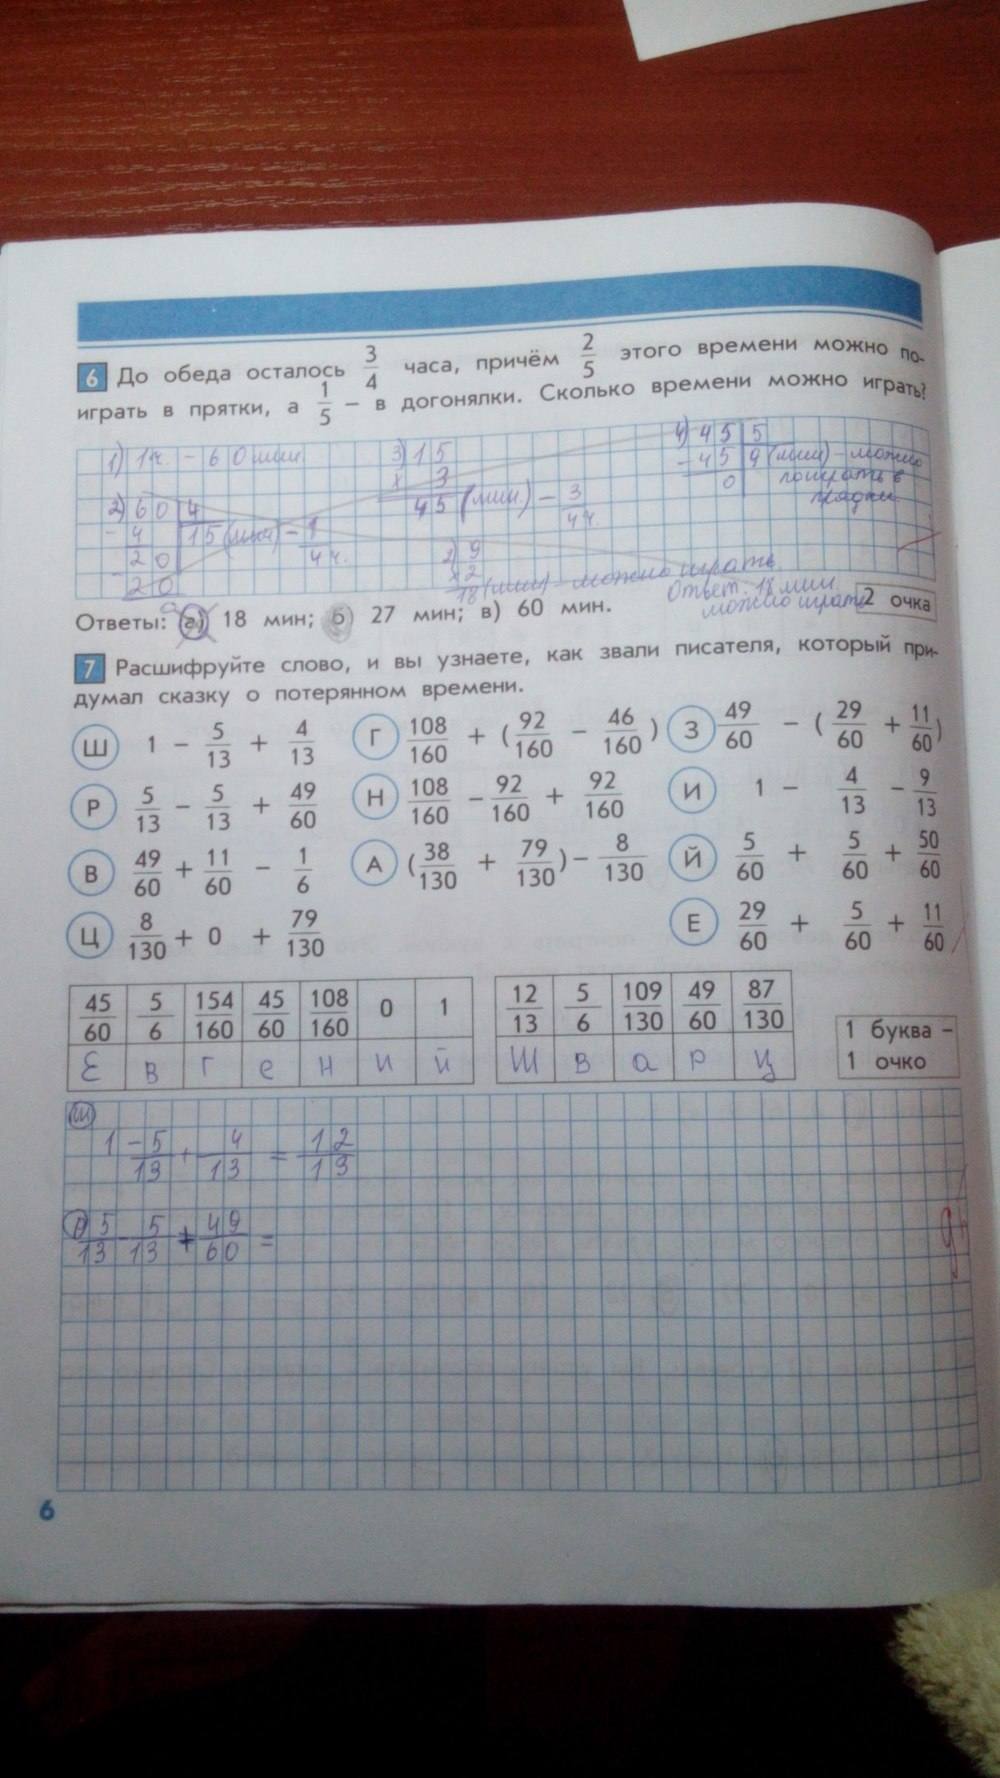 6 До обеда осталось 3/4 часа, причём 2/5 этого времени можно по-
играть в прятки, а 1/5 – в догонялки. Сколько времени можно играть?
1) 1ч. – 60 мин
3) 15
× 3
45 (мин.) – 3/4ч.
4) 45 5
- 45 9 (мин) – можно
0 поиграть в
прядки
2) 60 4
- 4 15 (мин) – 1/4ч.
20
- 20
9
×2
18 (мин) – можно играть
Ответ: 18 мин.
можно играть
Ответы: а) 18 мин; б) 27 мин; в) 60 мин.
2 очка
7 Расшифруйте слово, и вы узнаете, как звали писателя, который при-
думал сказку о потерянном времени.
Ш 1 – 5/13 + 4/13 Г 108/160 + (92/160 – 46/160) З 49/60 – (29/60 + 11/60)
Р 5/13 – 5/13 + 49/60 Н 108/160 – 92/160 + 92/160 И 1 – 4/13 – 9/13
В 49/60 + 11/60 – 1/6 А (38/130 + 79/130) – 8/130 Й 5/60 + 5/60 + 50/60
Ц 8/130 + 0 + 79/130 Е 29/60 + 5/60 + 11/60
45/60 5/6 154/160 45/60 108/160 0 1 12/13 5/6 109/130 49/60 87/130
Е в г е н и й Ш в а р ц
1 буква –
1 очко
Ш
1 – 5/13 + 4/13 = 12/13
Р 5/13 – 5/13 + 49/60 =
6